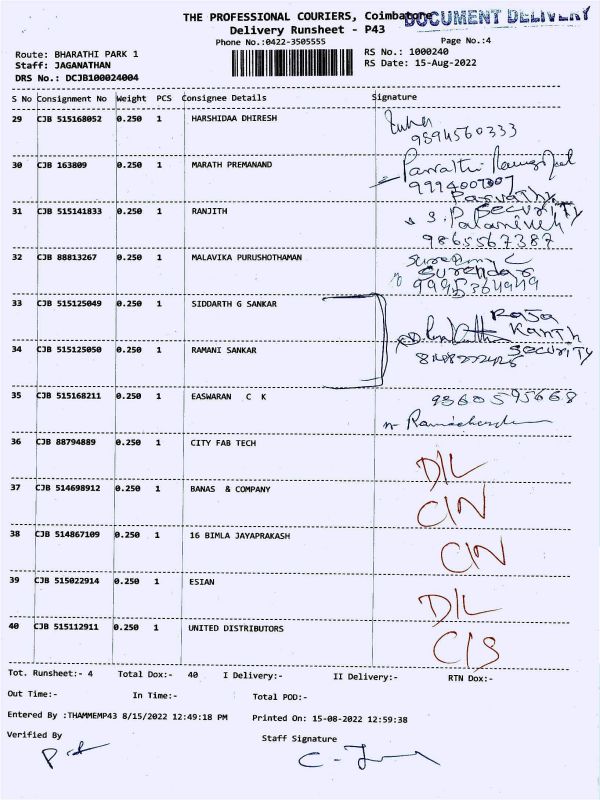 THE PROFESSIONAL COURIERS, Coimbatore
DOCUMENT DELIVERY
Delivery Runsheet - P43
Phone No.:0422-3505555
Page No.:4
Route: BHARATHI PARK 1
RS No.: 1000240
Staff: JAGANATHAN
RS Date: 15-Aug-2022
DRS No.: DCJB100024004
S No Consignment No Weight PCS Consignee Details Signature
29 CJB 515168052 0.250 1 HARSHIDAA DHIRESH
9894560333
30 CJB 163809 0.250 1 MARATH PREMANAND
9994007307
Parvathy
31 CJB 515141833 0.250 1 RANJITH
SECURITY
S. Palanivel
9865567387
32 CJB 88813267 0.250 1 MALAVIKA PURUSHOTHAMAN
Surendar
9995364949
33 CJB 515125049 0.250 1 SIDDARTH G SANKAR
RAJA
KANTH
34 CJB 515125050 0.250 1 RAMANI SANKAR
SECURITY
35 CJB 515168211 0.250 1 EASWARAN C K
9360595668
36 CJB 88794889 0.250 1 CITY FAB TECH
D/L
37 CJB 514698912 0.250 1 BANAS & COMPANY
C/N
38 CJB 514867109 0.250 1 16 BIMLA JAYAPRAKASH
C/N
39 CJB 515022914 0.250 1 ESIAN
D/L
40 CJB 515112911 0.250 1 UNITED DISTRIBUTORS
C/S
Tot. Runsheet:- 4 Total Dox:- 40 I Delivery:- II Delivery:- RTN Dox:-
Out Time:- In Time:- Total POD:-
Entered By :THAMMEMP43 8/15/2022 12:49:18 PM Printed On: 15-08-2022 12:59:38
Verified By Staff Signature